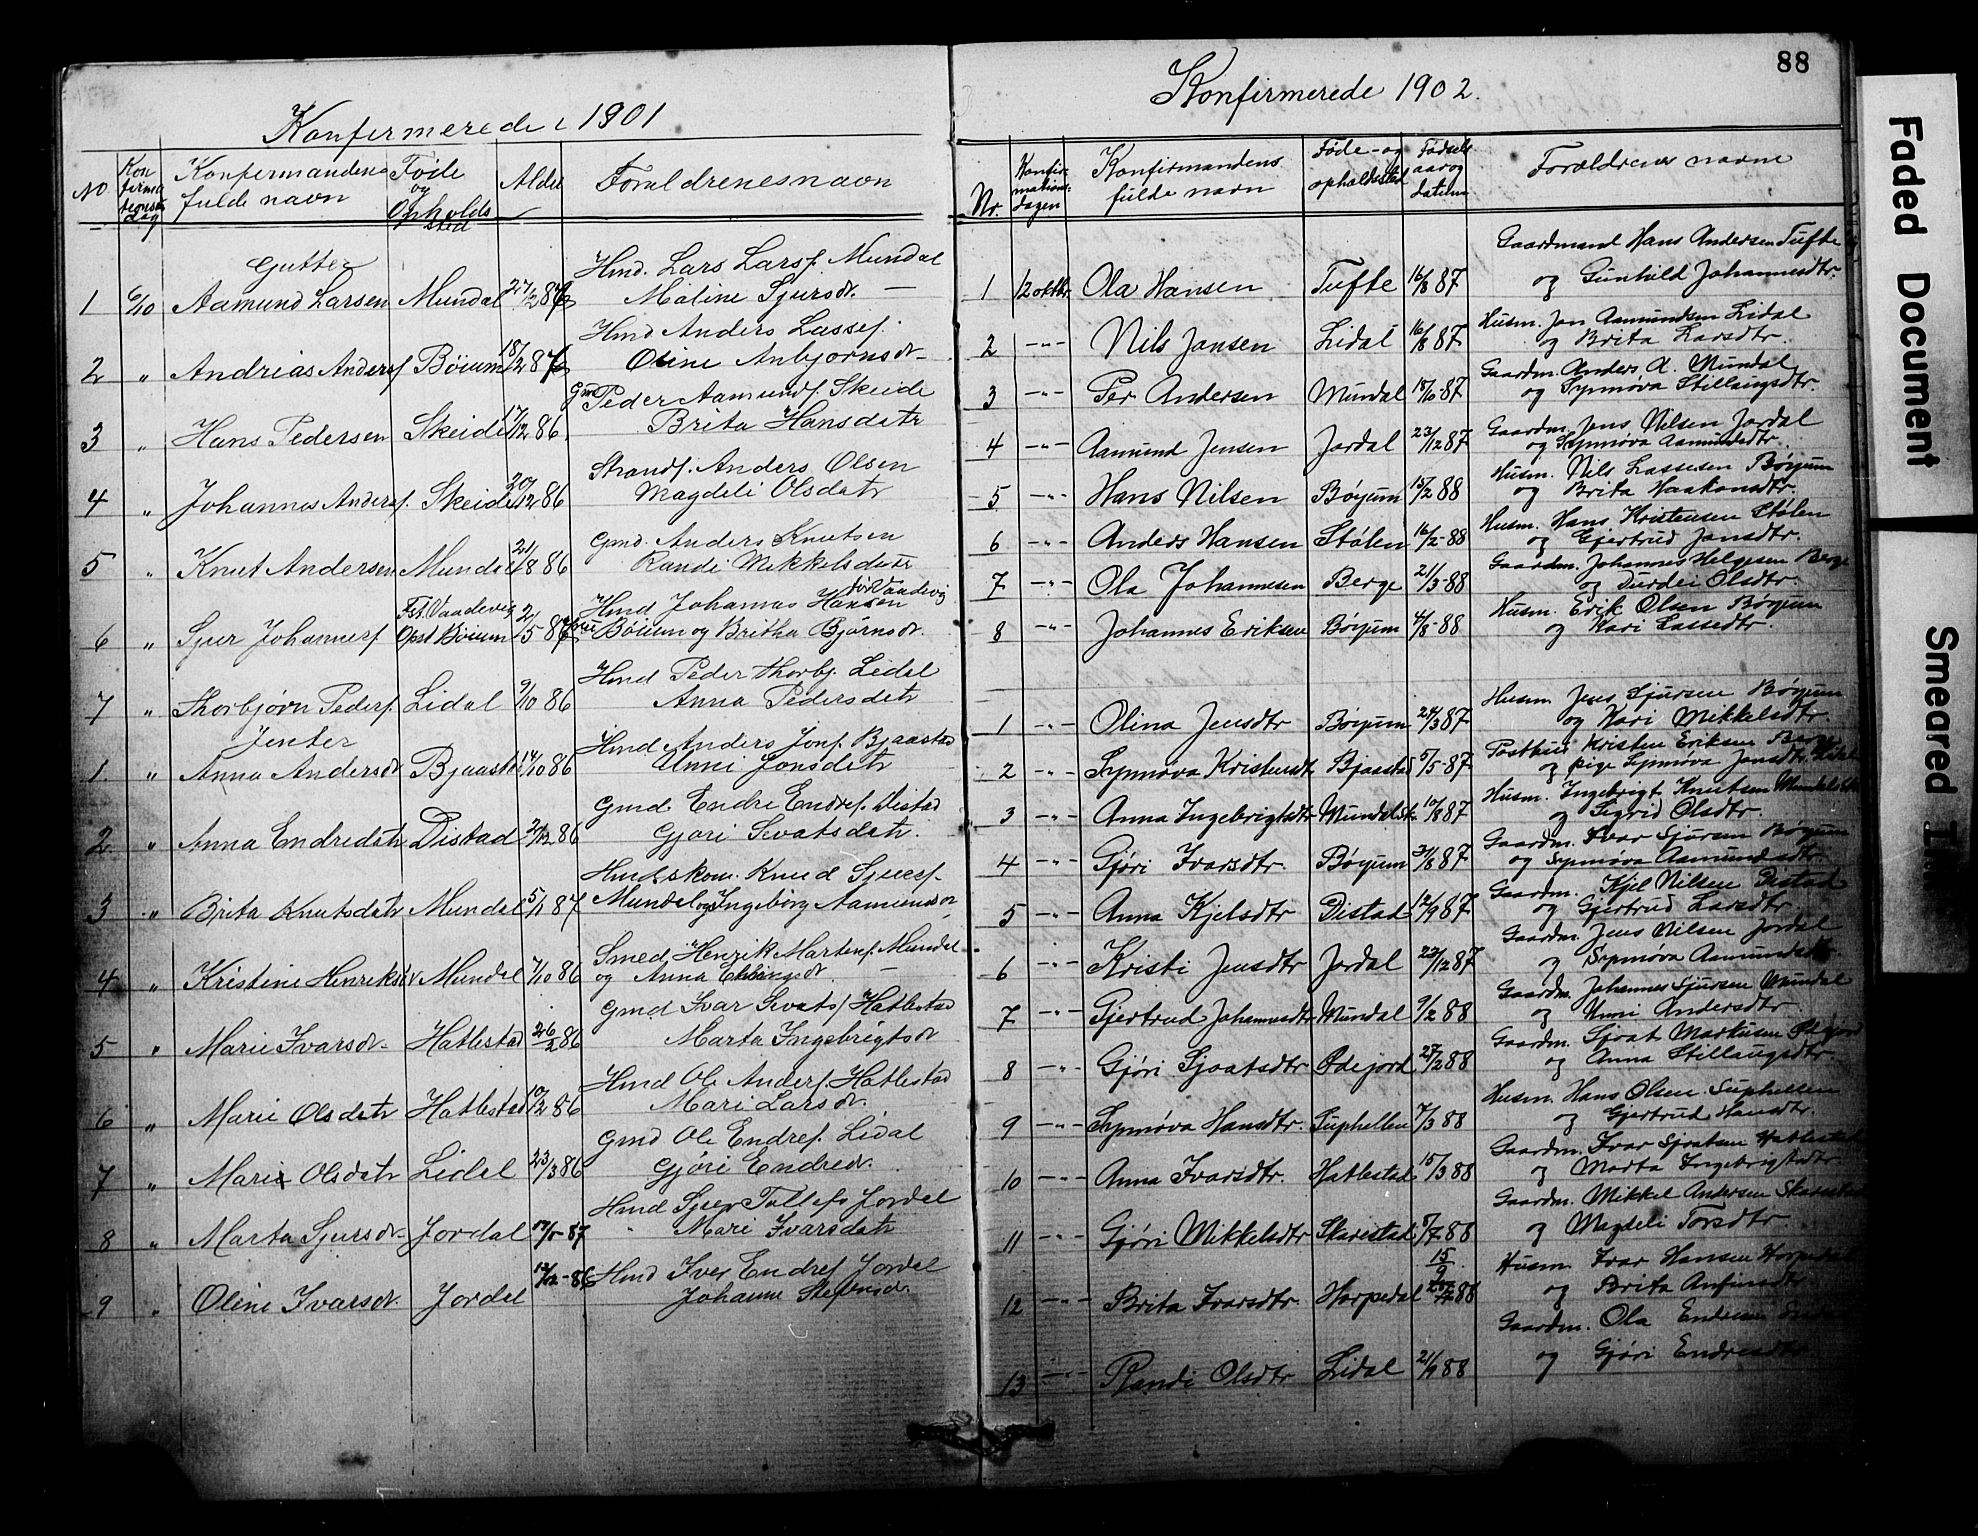 Konfermerede 1901
No
Kon
ferma
tionsdag
Konfermandens
fulde navn
Föde
og
Opholds
sted
Alder
Foreldrenes navn
Gutter
1 6/10 Aamund Larsen Mundal 27/2 87 Hmd. Lars Larsf. Mundal
Maline Sjursdr. —
2 " Andrias Andersf Böium 18/2 87 Hmd Anders Lassef.
Oline Anbjornsdr
3 " Hans Pedersen Skeide 17/12 86 Gmd Peder Aamundf. Skeide
Brita Hansdatr
4 " Johannes Andersf. Skeide 20/12 86 Strandf. Anders Olsen
Magdeli Olsdatr
5 " Knut Andersen Mundal 21/8 86 Gmd. Anders Knutsen
Randi Mikkelsdatr
6 " Sjur Johannesf Fst. Vaadevig
Opst Böium 2/5 87 Hmd Johannes Hansen
Böium og Britha Björnsdr.
7 " Thorbjörn Pederf. Lidal 9/10 86 Hmd Peder Thorbj. Lidal
Anna Pedersdatr
Jenter
1. " Anna Andersdr Bjaastad 14/10 86 Hmd Anders Jonf. Bjaastad
Unni Jonsdatr
2 " Anna Endredatr Distad 21/12 86 Gmd Endre Endref. Distad
Gjöri Sevatsdatr.
3 " Brita Knutsdatr Mundal 5/1 87 Hmdskom. Knud Sjuersf.
Mundal og Ingeborg Aamundsdr
4 " Kristine Henriksdr Mundal 7/10 86 Smed Henrik Martenf. Mundal
og Anna —
5 " Marie Ivarsdr. Hatlestad 26/2 86 Gmd Ivar Sevatsf Hatlestad
Marta Ingebrigtsdr
6 " Marie Olsdatr Hatlestad 10/2 86 Hmd Ole Andersf. Hatlestad
Mari Larsdr.
7 " Marie Olsdatr Lidal 23/3 86 Gmd Ole Endref. Lidal
Gjöri Endredr.
8 " Marta Sjursdr. Jordal 87 Hmd Sjuer Tollefs Jordal
" Mari Ivarsdatr
9 " Oline Ivarsdr. Jordal 12/12-86 Hmd Iver Endref Jordal
Johanne Stefensdr.
88
Konfirmerede 1902.
Nr.
Konfir-
mations-
dagen
Konfirmandens
fulde navn
Føde- og
opholdssted
Fødsels
aar og
datum
Forældrenes navne
1 12 oktbr. Ola Hansen Tufte 16/8 87 Gaardmand Hans Andersen Tufte
og Gunhild Johannesdtr.
2 —"— Nils Jonsen Lidal 16/8 87 Husm. Jon Aamundsen Lidal
og Brita Larsdtr.
3 —"— Per Andersen Mundal 18/10-87 Gaardm. Anders A. Mundal
og Synnøva Stillaugsdtr.
4 —"— Aamund Jensen Jordal 23/12 87 Gaardm. Jens Nilsen Jordal
og Synnøva Aamundsdtr.
5 —"— Hans Nilsen Bøyum 15/2 88 Husm. Nils Lassesen Bøyum
og Brita Haakonsdtr.
6 —"— Anders Hansen Stølen 16/2-88 Husm. Hans Kristensen Stølen
og Gjertrud Jonsdtr.
7 —"— Ola Johannesen Berge 21/3-88 Gaardm. Johannes Helgesen Berge
og Durdei Olsdtr.
8 —"— Johannes Eriksen Bøyum 4/8-88 Husm. Erik Olsen Bøyum
og Kari Lassedtr.
1 —"— Olina Jensdtr Bøyum 24/3 87 Husm. Jens Sjursen Bøyum
og Kari Mikkelsdtr.
2 —"— Synnøva Kristensdtr Bjaastad 5/5-87 Kristen Eriksen Berge
og pige Synnøva Jonsdtr.
3 —"— Anna Ingebrigtsdtr Mundalsk. 10/8 87 Husm. Ingebrigt Knutsen
og Sigrid Olsdtr.
4 —"— Gjøri Ivarsdtr. Bøyum 31/8 87 Gaardm. Ivar Sjursen Bøyum
og Synnøva Aamundsdtr.
5 —"— Anna Kjelsdtr Distad 12/9 87 Gaardm. Kjel Nilsen Distad
og Gjertrud Larsdtr.
6 —"— Kristi Jensdtr Jordal 23/12 87 Gaardm. Jens Nilsen Jordal
og Synnøva Aamundsdtr.
7 —"— Gjertrud Johannesdtr Mundal 9/2 88 Gaardm. Johannes Sjursen Mundal
og Unni Andersdtr
8 —"— Gjøri Sjoatsdtr Ødejord 27/2 88 Gaardm. Sjoat Markusen
og Anna Stillaugsdtr.
9 —"— Synnøva Hansdtr. Suphellen 7/3 88 Husm. Hans Olsen Suphellen
og Gjertrud Hansdtr.
10 —"— Anna Ivarsdtr. Hatlestad 15/3 88 Gaardm. Ivar Sjoatsen Hatlestad
og Marta Ingebrigtsdtr.
11 —"— Gjøri Mikkelsdtr Skarestad 5/7 88 Gaardm. Mikkel Andersen Skarestad
og Magdeli Torsdtr.
12 —"— Brita Ivarsdtr. Horpedal 15/9 88 Husm. Ivar Hansen Horpedal
og Brita Anfinsdtr.
13 —"— Randi Olsdtr Lidal 21/9 88 Gaardm. Ola Endresen
og Gjøri Endresdtr
Faded Document
Smeared